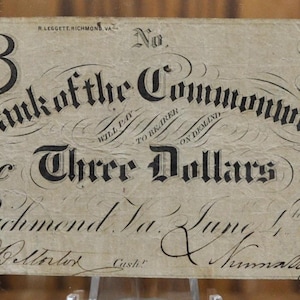 R. LEGGETT, RICHMOND, VA
No.
3
Bank of the Commonw
WILL PAY TO BEARER ON DEMAND
Three Dollars
Richmond Va. Jan'y 1
Cash'r